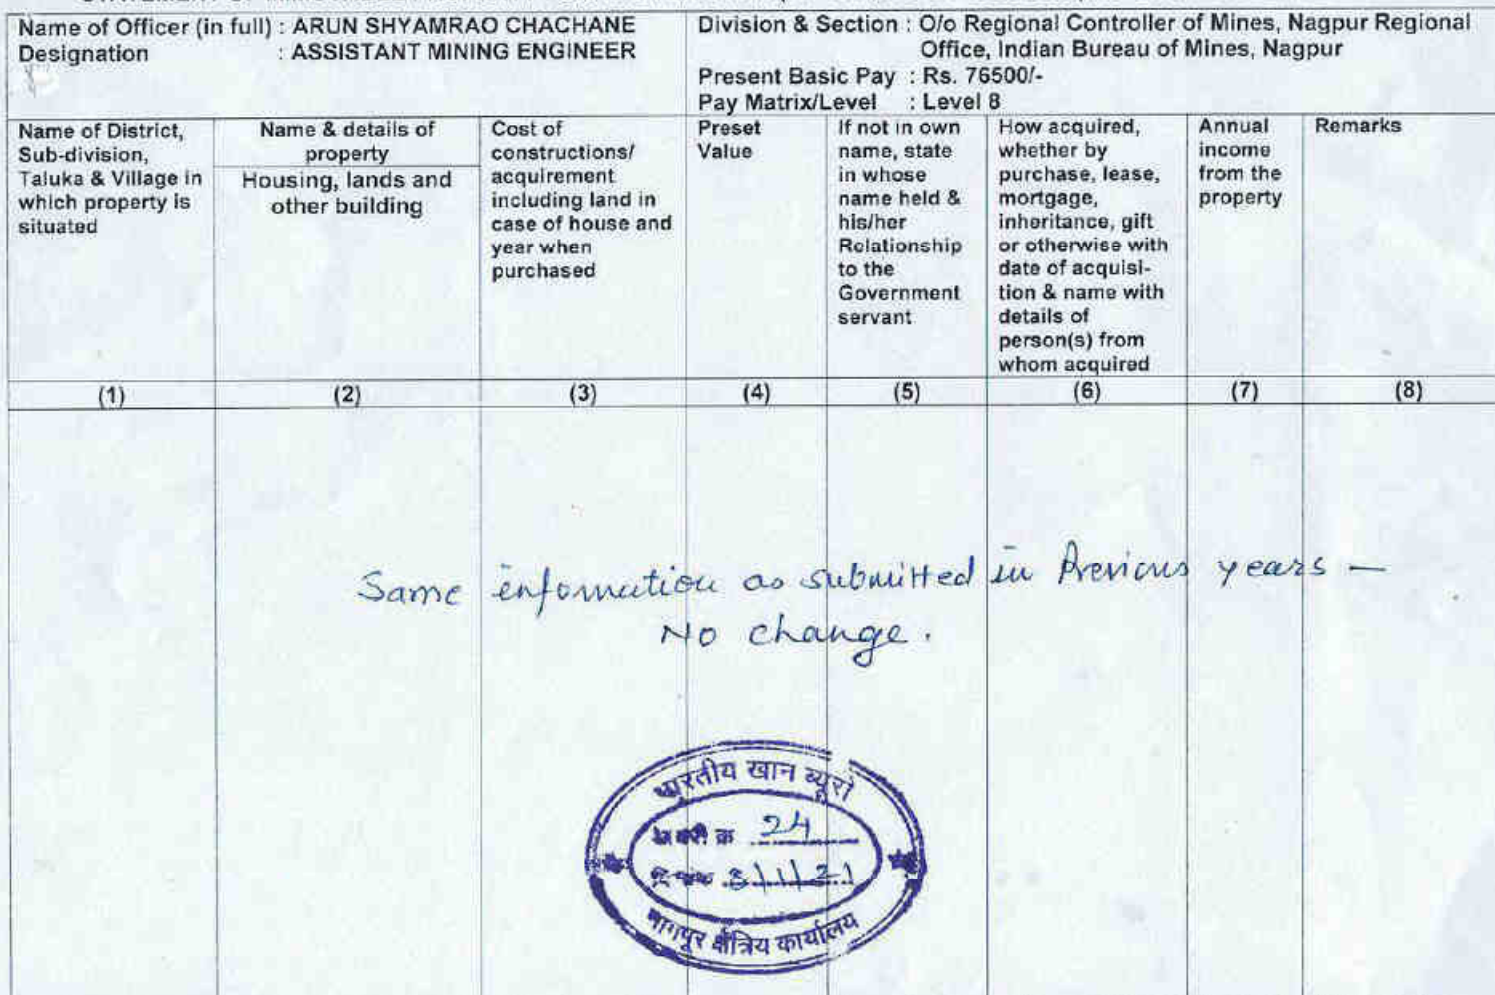 Name of Officer (in full) : ARUN SHYAMRAO CHACHANE
Designation : ASSISTANT MINING ENGINEER
Division & Section : O/o Regional Controller of Mines, Nagpur Regional
Office, Indian Bureau of Mines, Nagpur
Present Basic Pay : Rs. 76500/-
Pay Matrix/Level : Level 8
Name of District,
Sub-division,
Taluka & Village in
which property is
situated
Name & details of
property
Housing, lands and
other building
Cost of
constructions/
acquirement
including land in
case of house and
year when
purchased
Preset
Value
If not in own
name, state
in whose
name held &
his/her
Relationship
to the
Government
servant
How acquired,
whether by
purchase, lease,
mortgage,
inheritance, gift
or otherwise with
date of acquisi-
tion & name with
details of
person(s) from
whom acquired
Annual
income
from the
property
Remarks
(1) (2) (3) (4) (5) (6) (7) (8)
Same information as submitted in Previous years —
No change.
भारतीय खान ब्यूरो
क्र 24
/1/21
नागपुर क्षेत्रिय कार्यालय